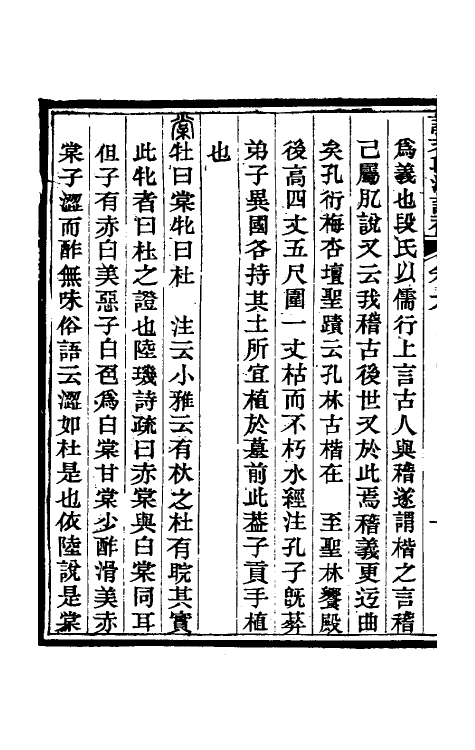 爲義也段氏以儒行上言古人與稽遂謂楷之言稽
己屬肊說又云我稽古後世又於此焉稽義更迃曲
矣孔衍梅杏壇聖蹟云孔林古楷在　至聖林饗殿
後高四丈五尺圍一丈枯而不朽水經注孔子旣葬
弟子異國各持其土所宜植於墓前此葢子貢手植
也
棠牡曰棠牝曰杜　注云小雅云有杕之杜有睆其實
此牝者曰杜之證也陸璣詩疏曰赤棠與白棠同耳
但子有赤白美惡子白色爲白棠甘棠少酢滑美赤
棠子澀而酢無味俗語云澀如杜是也依陸說是棠